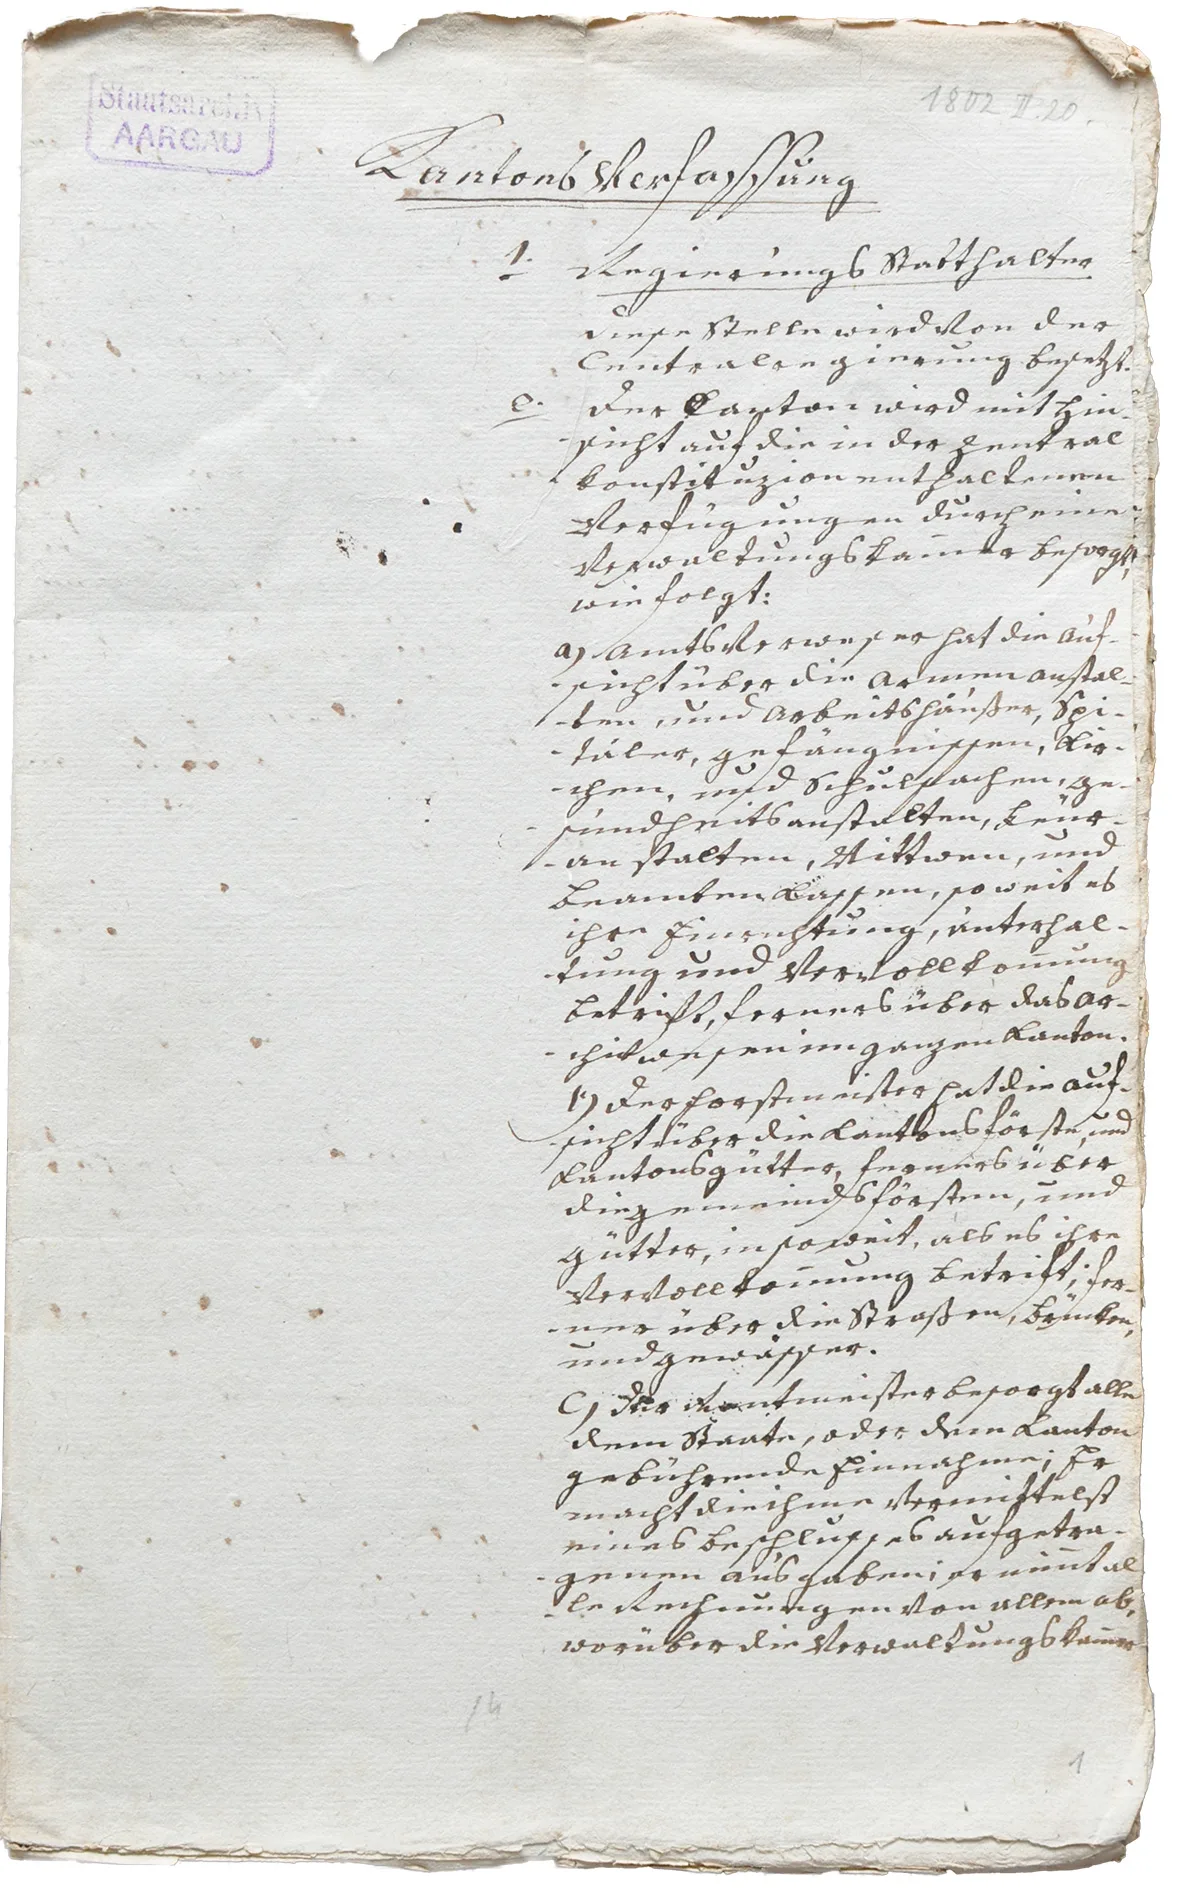 Staatsarchiv
AARGAU
1802 II. 20.
Kantons Verfassung
1. Regierungs Statthalter
Diese Stelle wird von der
Centralregierung besetzt.
2. Der Kanton wird mit Hin-
-sicht auf die in der Zentral
Konstituzion enthaltenen
Verfügungen durch eine
Verwaltungskam̅er besorgt,
wie folgt:
a) Amts Verweser hat die Auf-
-sicht über die Armen anstal-
-ten, und Arbeitshäußer, Spi-
-täler, gefängnissen, Kir-
-chen, und Schulsachen, ge-
-sundheitsanstalten,
-anstalten, Wittwen, und
beamten Kassen, soweit es
ihre Einrichtung, unterhal-
-tung und Vervollkom̅nung
betrift, ferners über das Ar-
-chivwesen im ganzen Kanton.
b) Der forstmeister hat die Auf-
-sicht über die Kantonsförste, und
Kantonsgütter, ferners über
die gemeindsförsten, und
gütter, in soweit, als es ihre
Vervollkom̅nung betrift; fer-
-ner über die Straßen, brücken,
und gewässer.
C) Der Rentmeister besorgt alle
dem Staate, oder dem Kanton
gebührende Einnahme; Er
macht die ihme vermittelst
eines beschlusses aufgetra-
-genen ausgaben; er nim̅t al
-le Rechnungen von allem ab,
worüber die Verwaltungskam̅er
1